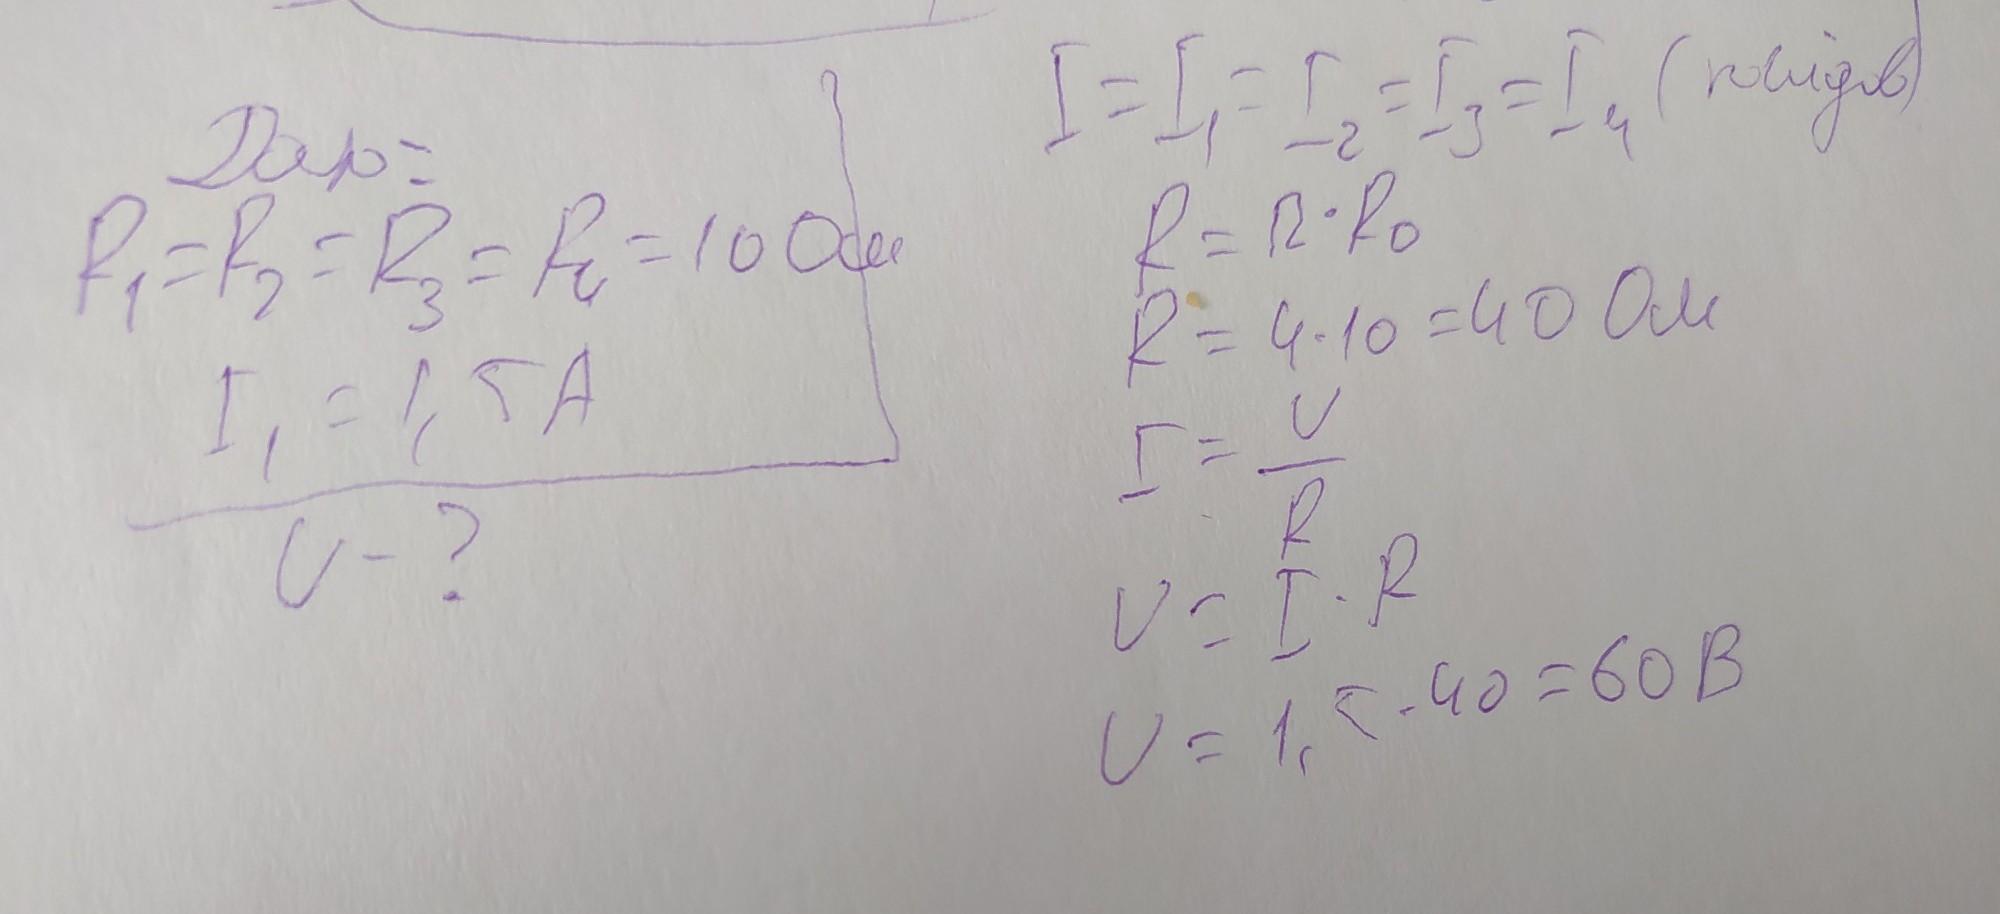 Дано:
R₁ = R₂ = R₃ = R₄ = 10 Ом
I₁ = 1,5 А
U - ?
I = I₁ = I₂ = I₃ = I₄ (послідов)
R = n · R₀
R = 4 · 10 = 40 Ом
I = U / R
U = I · R
U = 1,5 · 40 = 60 В